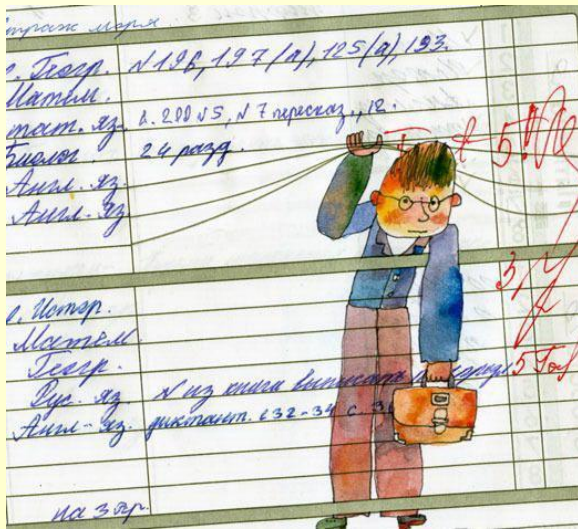 Геогр. N 196, 197/(а), 125(а), 193.
Матем.
тат. яз. с. 200 N5, N7 пересказ., 12.
Биолог. 24 разд.
Англ. яз.
Англ. яз.
5
3
Истор.
Матем.
Геогр.
Рус. яз. N из книга выписать
5
Англ. яз. диктант. с 32-34 с. 3
на 3 гр.